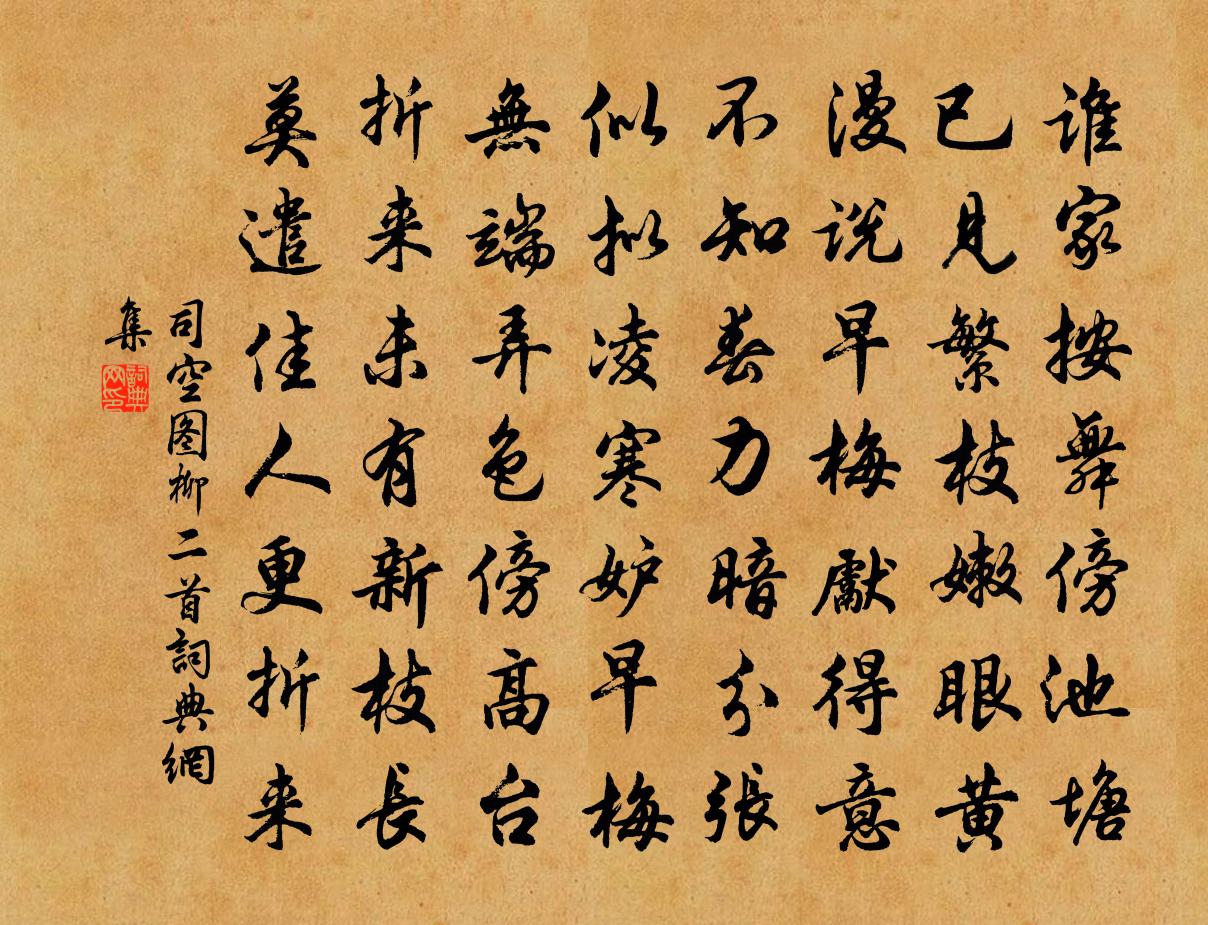 谁家按舞傍池塘
已見繁枝嫩眼黄
漫説早梅獻得意
不知春力暗分張
似拟凌寒妒早梅
無端弄色傍高台
折来未有新枝長
莫遣佳人更折来
司空图柳二首詞典網
集
詞典网印